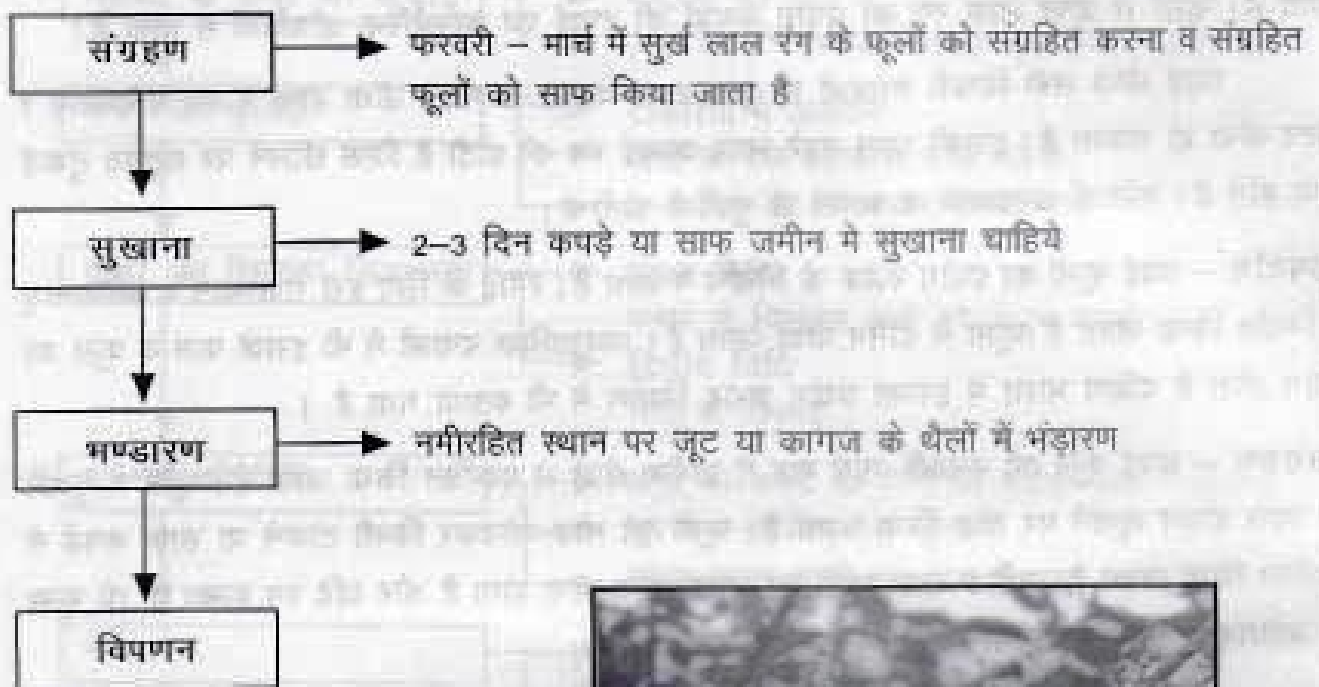 संग्रहण
फरवरी – मार्च में सुर्ख लाल रंग के फूलों को संग्रहित करना व संग्रहित
फूलों को साफ किया जाता है
सुखाना
2–3 दिन कपड़े या साफ जमीन मे सुखाना चाहिये
भण्डारण
नमीरहित स्थान पर जूट या कागज के थैलों में भंड़ारण
विपणन